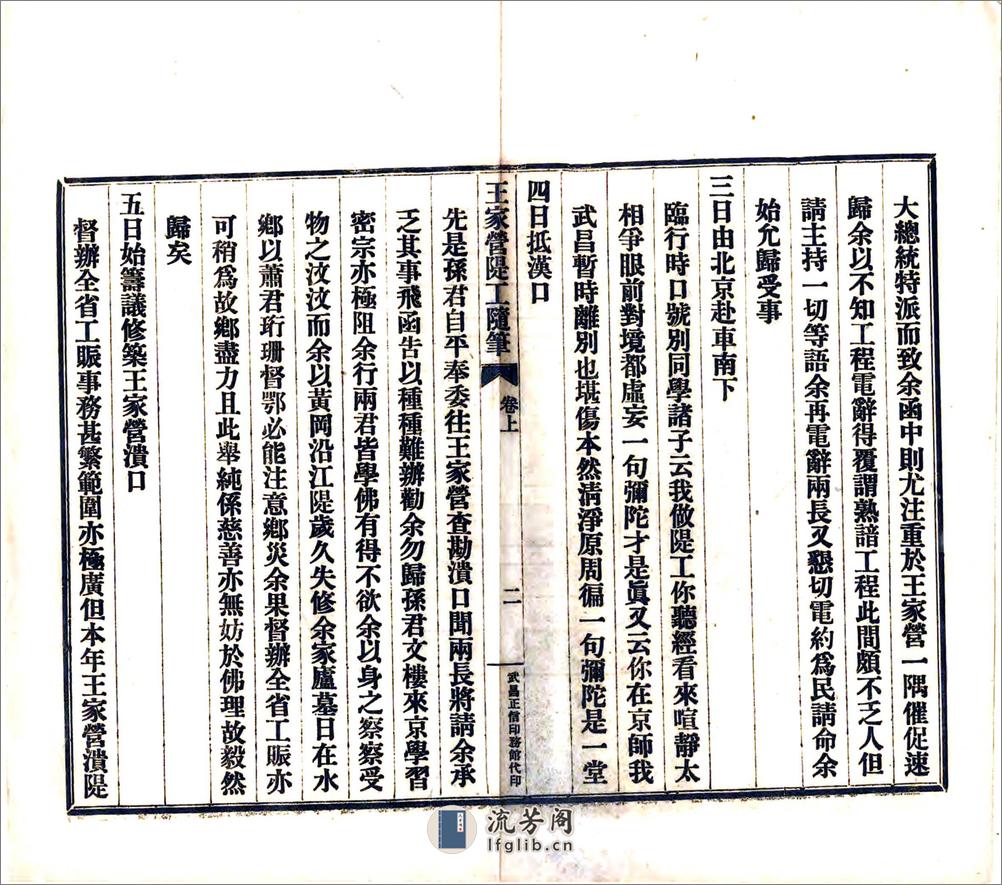 大總統特派而致余函中則尤注重於王家營一隅催促速
歸余以不知工程電辭得覆謂熟諳工程此間頗不乏人但
請主持一切等語余再電辭兩長又懇切電約爲民請命余
始允歸受事
三日由北京赴車南下
臨行時口號別同學諸子云我做隄工你聽經看來喧靜太
相爭眼前對境都虛妄一句彌陀才是眞又云你在京師我
武昌暫時離別也堪傷本然清淨原周徧一句彌陀是一堂
四日抵漢口
王家營隄工隨筆 卷上 二 武昌正信印務館代印
先是孫君自平奉委往王家營查勘潰口聞兩長將請余承
乏其事飛函告以種種難辦勸余勿歸孫君文樓來京學習
密宗亦極阻余行兩君皆學佛有得不欲余以身之察察受
物之汶汶而余以黃岡沿江隄歲久失修余家廬墓日在水
鄉以蕭君珩珊督鄂必能注意鄉災余果督辦全省工賑亦
可稍爲故鄉盡力且此舉純係慈善亦無妨於佛理故毅然
歸矣
五日始籌議修築王家營潰口
督辦全省工賑事務甚繁範圍亦極廣但本年王家營潰隄
流芳阁
lfglib.cn